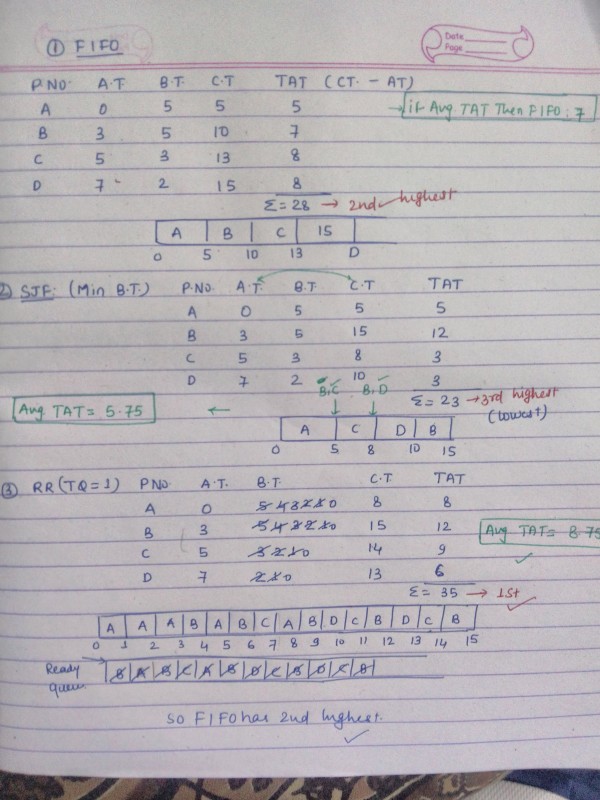 Date
Page
① FIFO
P.NO. A.T. B.T. C.T TAT (CT. - AT)
A 0 5 5 5 → if Avg TAT Then FIFO: 7
B 3 5 10 7
C 5 3 13 8
D 7 2 15 8
Σ = 28 → 2nd highest
A B C 15
0 5 10 13 D
2) SJF: (Min B.T.) P.NO. A.T. B.T. C.T TAT
A 0 5 5 5
B 3 5 15 12
C 5 3 8 3
D 7 2 10 3
B,C B,D Σ = 23 → 3rd highest
(lowest)
Avg TAT = 5.75 ←
A C D B
0 5 8 10 15
③ RR (TQ=1) P.NO A.T. B.T. C.T TAT
A 0 5 4 3 2 1 0 8 8
B 3 5 4 3 2 1 0 15 12 Avg TAT = 8.75
C 5 3 2 1 0 14 9
D 7 2 1 0 13 6
Σ = 35 → 1st
A A A B A B C A B D C B D C B
0 1 2 3 4 5 6 7 8 9 10 11 12 13 14 15
Ready queue
So FIFO has 2nd highest.